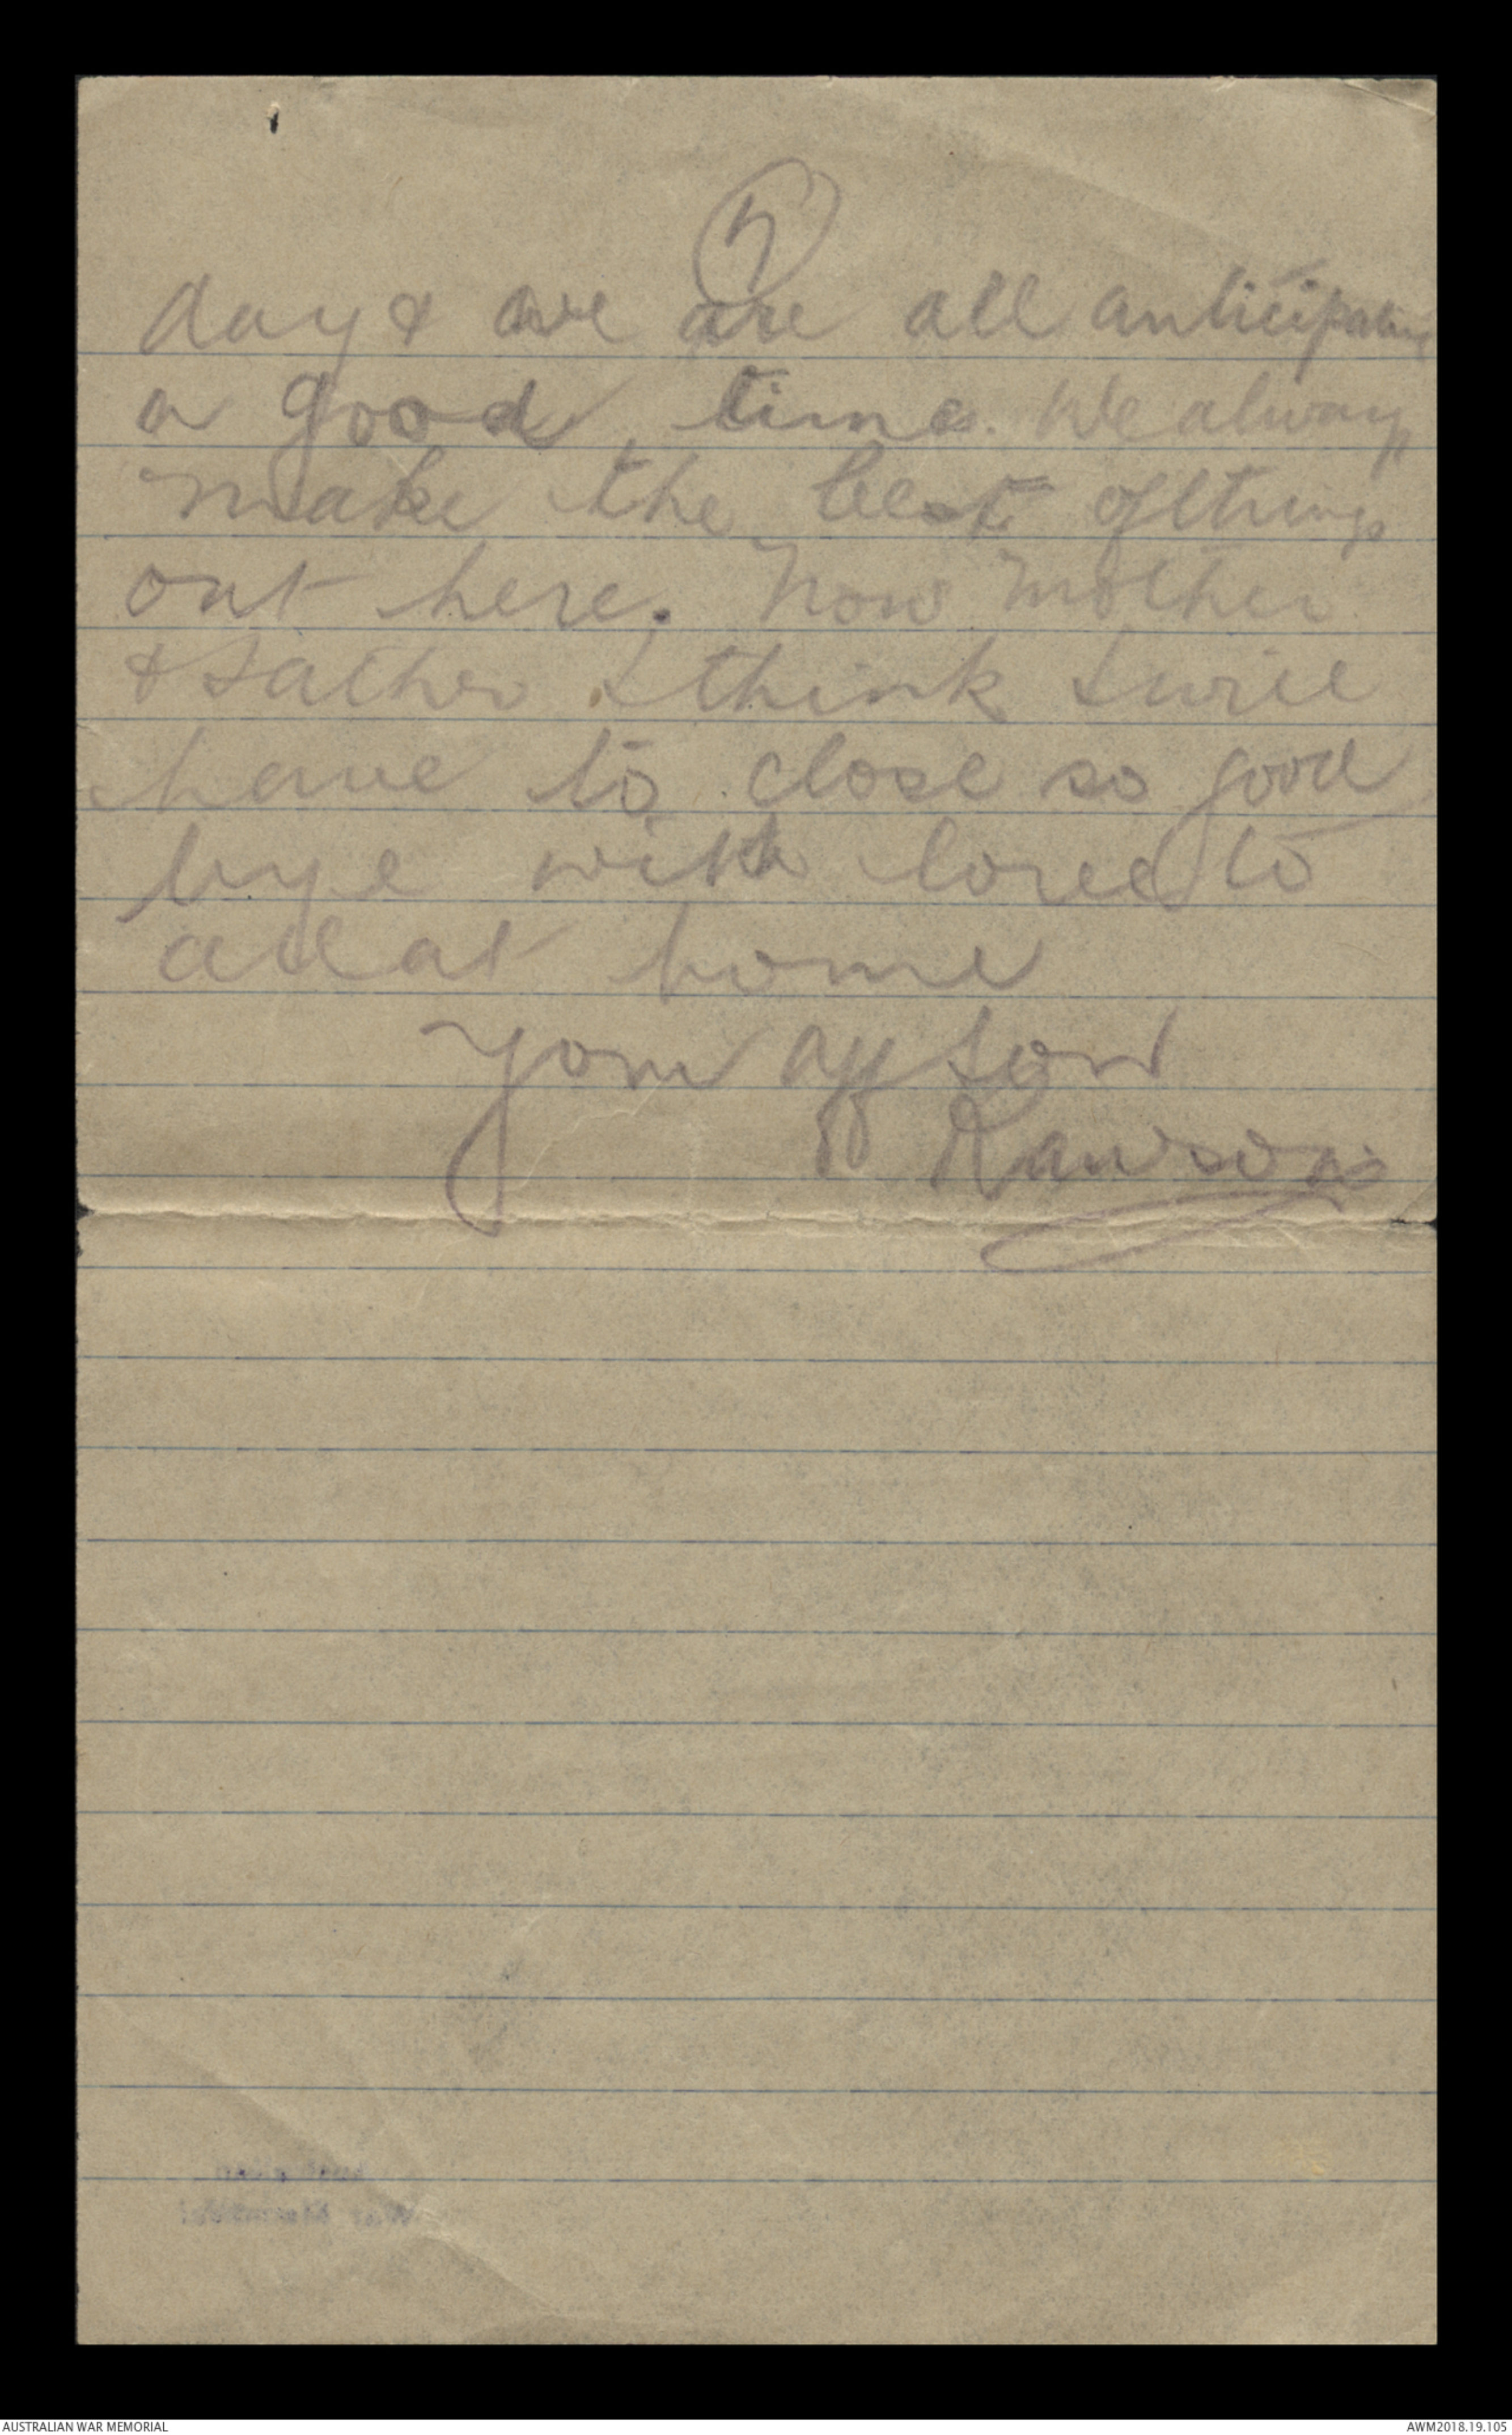 7
day & we are all anticipating
a good time. We always
make the best of things
out here. Now Mother
& Father I think I will
have to close so good
bye with love to
all at home
Your aff son
Rawson
AUSTRALIAN WAR MEMORIAL
AWM2018.19.105